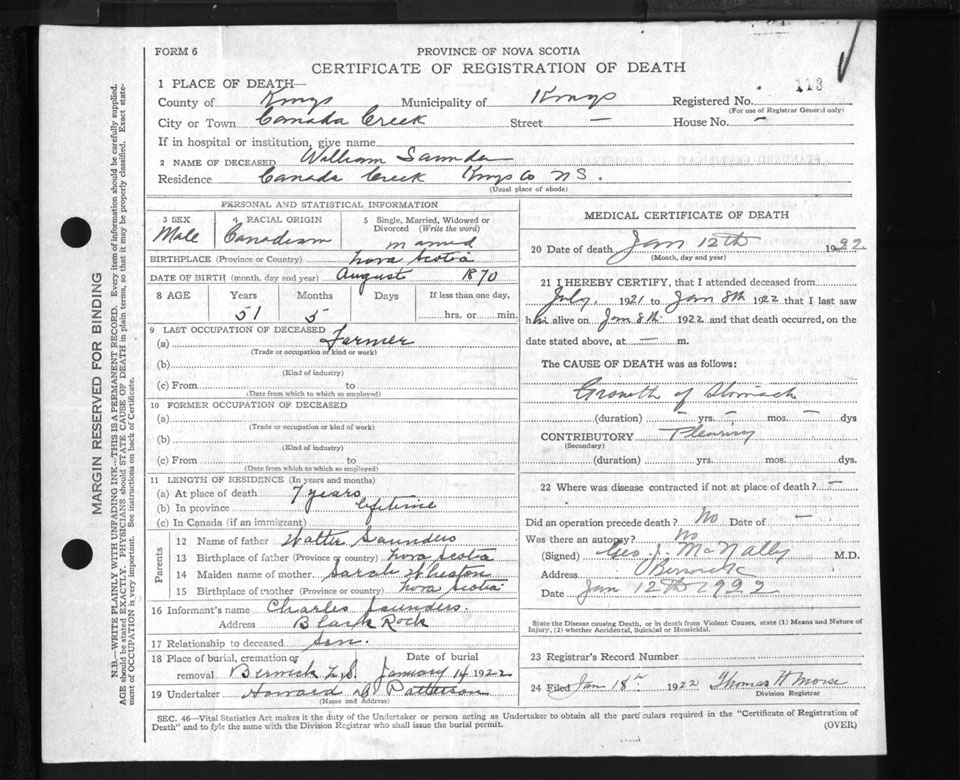 FORM 6
PROVINCE OF NOVA SCOTIA
CERTIFICATE OF REGISTRATION OF DEATH
113
1 PLACE OF DEATH—
County of Kings Municipality of Kings Registered No.
(For use of Registrar General only)
City or Town Canada Creek Street — House No. -
If in hospital or institution, give name
2 NAME OF DECEASED William Saunders
Residence Canada Creek Kings Co N S.
(Usual place of abode)
PERSONAL AND STATISTICAL INFORMATION
3 SEX 4 RACIAL ORIGIN 5 Single, Married, Widowed or Divorced (Write the word)
Male Canadian married
BIRTHPLACE (Province or Country) Nova Scotia
DATE OF BIRTH (month, day and year) August 1870
8 AGE Years Months Days If less than one day,
51 5 hrs. or min.
9 LAST OCCUPATION OF DECEASED
(a) Farmer
(Trade or occupation or kind or work)
(b)
(Kind of industry)
(c) From to
(Date from which to which so employed)
10 FORMER OCCUPATION OF DECEASED
(a)
(Trade or occupation or kind of work)
(b)
(Kind of industry)
(c) From to
(Date from which to which so employed)
11 LENGTH OF RESIDENCE (In years and months)
(a) At place of death 7 years
(b) In province lifetime
(c) In Canada (if an immigrant)
Parents
12 Name of father Walter Saunders
13 Birthplace of father (Province or country) Nova Scotia
14 Maiden name of mother Sarah
15 Birthplace of mother (Province or country) Nova Scotia
16 Informant's name Charles Saunders.
Address Black Rock
17 Relationship to deceased son.
18 Place of burial, cremation or removal Date of burial
Berwick N.S. January 14 1922
19 Undertaker Howard Patterson
(Name and Address)
MEDICAL CERTIFICATE OF DEATH
20 Date of death Jan 12th 1922.
(Month, day and year)
21 I HEREBY CERTIFY, that I attended deceased from
July, 1921 to Jan 8th 1922 that I last saw
him alive on Jan 8th 1922 and that death occurred, on the
date stated above, at — m.
The CAUSE OF DEATH was as follows:
Growth of Stomach
(duration) - yrs. - mos. - dys
CONTRIBUTORY Pleurisy
(Secondary)
(duration) yrs. mos. dys.
22 Where was disease contracted if not at place of death? -
Did an operation precede death? No Date of —
Was there an autopsy? No
(Signed) Geo J. McNally M.D.
Address Berwick
Date Jan 12th 1922
State the Disease causing Death, or in death from Violent Causes, state (1) Means and Nature of
Injury, (2) whether Accidental, Suicidal or Homicidal.
23 Registrar's Record Number
24 Filed Jan 18th 1922 Thomas H Morse
Division Registrar
SEC. 46—Vital Statistics Act makes it the duty of the Undertaker or person acting as Undertaker to obtain all the particulars required in the "Certificate of Registration of
Death" and to fyle the same with the Division Registrar who shall issue the burial permit.
(OVER)
MARGIN RESERVED FOR BINDING
N.B.—WRITE PLAINLY WITH UNFADING INK—THIS IS A PERMANENT RECORD. Every item of information should be carefully supplied.
AGE should be stated EXACTLY. PHYSICIANS should STATE CAUSE OF DEATH in plain terms, so that it may be properly classified. Exact state-
ment of OCCUPATION is very important. See instructions on back of Certificate.